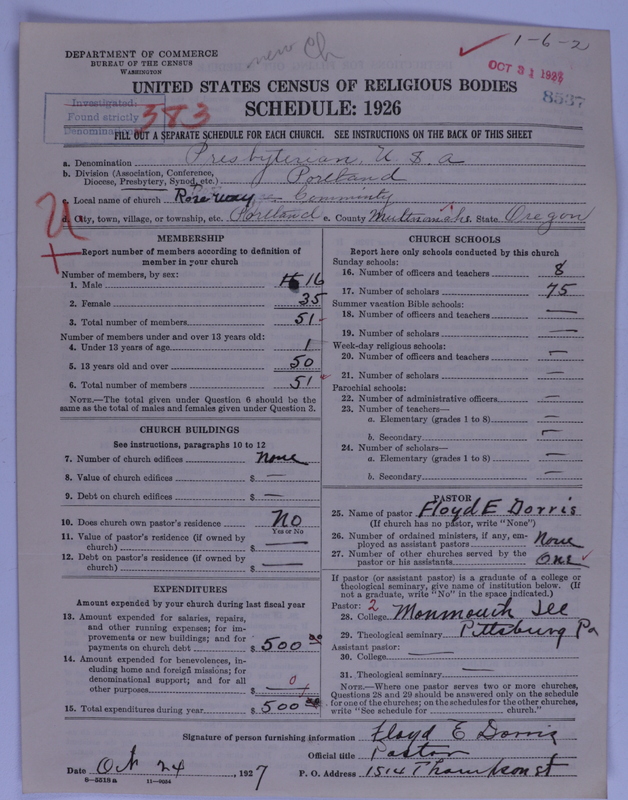 new Ch
1-6-2
DEPARTMENT OF COMMERCE
BUREAU OF THE CENSUS
WASHINGTON
OCT 31 1927
8537
UNITED STATES CENSUS OF RELIGIOUS BODIES
SCHEDULE: 1926
Investigated:
Found strictly
Denominational
383
FILL OUT A SEPARATE SCHEDULE FOR EACH CHURCH. SEE INSTRUCTIONS ON THE BACK OF THIS SHEET
a. Denomination Presbyterian, U S A
b. Division (Association, Conference,
Diocese, Presbytery, Synod, etc.) Portland
c. Local name of church Rose way Comminty
d. City, town, village, or township, etc. Portland e. County Multnomah State Oregon
MEMBERSHIP
Report number of members according to definition of
member in your church
Number of members, by sex:
1. Male 16
2. Female 35
3. Total number of members 51
Number of members under and over 13 years old:
4. Under 13 years of age 1
5. 13 years old and over 50
6. Total number of members 51
NOTE.—The total given under Question 6 should be the
same as the total of males and females given under Question 3.
CHURCH BUILDINGS
See instructions, paragraphs 10 to 12
7. Number of church edifices None
8. Value of church edifices $ —
9. Debt on church edifices $ —
10. Does church own pastor's residence No
Yes or No
11. Value of pastor's residence (if owned by
church) $ —
12. Debt on pastor's residence (if owned by
church) $ —
EXPENDITURES
Amount expended by your church during last fiscal year
13. Amount expended for salaries, repairs,
and other running expenses; for im-
provements or new buildings; and for
payments on church debt $ 500 00
14. Amount expended for benevolences, in-
cluding home and foreign missions; for
denominational support; and for all
other purposes $ — 0
15. Total expenditures during year $ 500 00
CHURCH SCHOOLS
Report here only schools conducted by this church
Sunday schools:
16. Number of officers and teachers 8
17. Number of scholars 75
Summer vacation Bible schools:
18. Number of officers and teachers —
19. Number of scholars —
Week-day religious schools:
20. Number of officers and teachers —
21. Number of scholars —
Parochial schools:
22. Number of administrative officers —
23. Number of teachers—
a. Elementary (grades 1 to 8) —
b. Secondary —
24. Number of scholars—
a. Elementary (grades 1 to 8) —
b. Secondary —
PASTOR
25. Name of pastor Floyd E Dorris
(If church has no pastor, write "None")
26. Number of ordained ministers, if any, em-
ployed as assistant pastors None
27. Number of other churches served by the
pastor or his assistants One
If pastor (or assistant pastor) is a graduate of a college or
theological seminary, give name of institution below. (If
not a graduate, write "No" in the space indicated.)
Pastor: 2
28. College Monmouth Ill
29. Theological seminary Pittsburg Pa
Assistant pastor:
30. College —
31. Theological seminary —
NOTE.—Where one pastor serves two or more churches,
Questions 28 and 29 should be answered only on the schedule
for one of the churches; on the schedules for the other churches,
write "See schedule for church."
Signature of person furnishing information Floyd E Dorris
Official title Pastor
Date Oct 24, 1927 P. O. Address 1514 Thompson st
8-5518a 11-9054